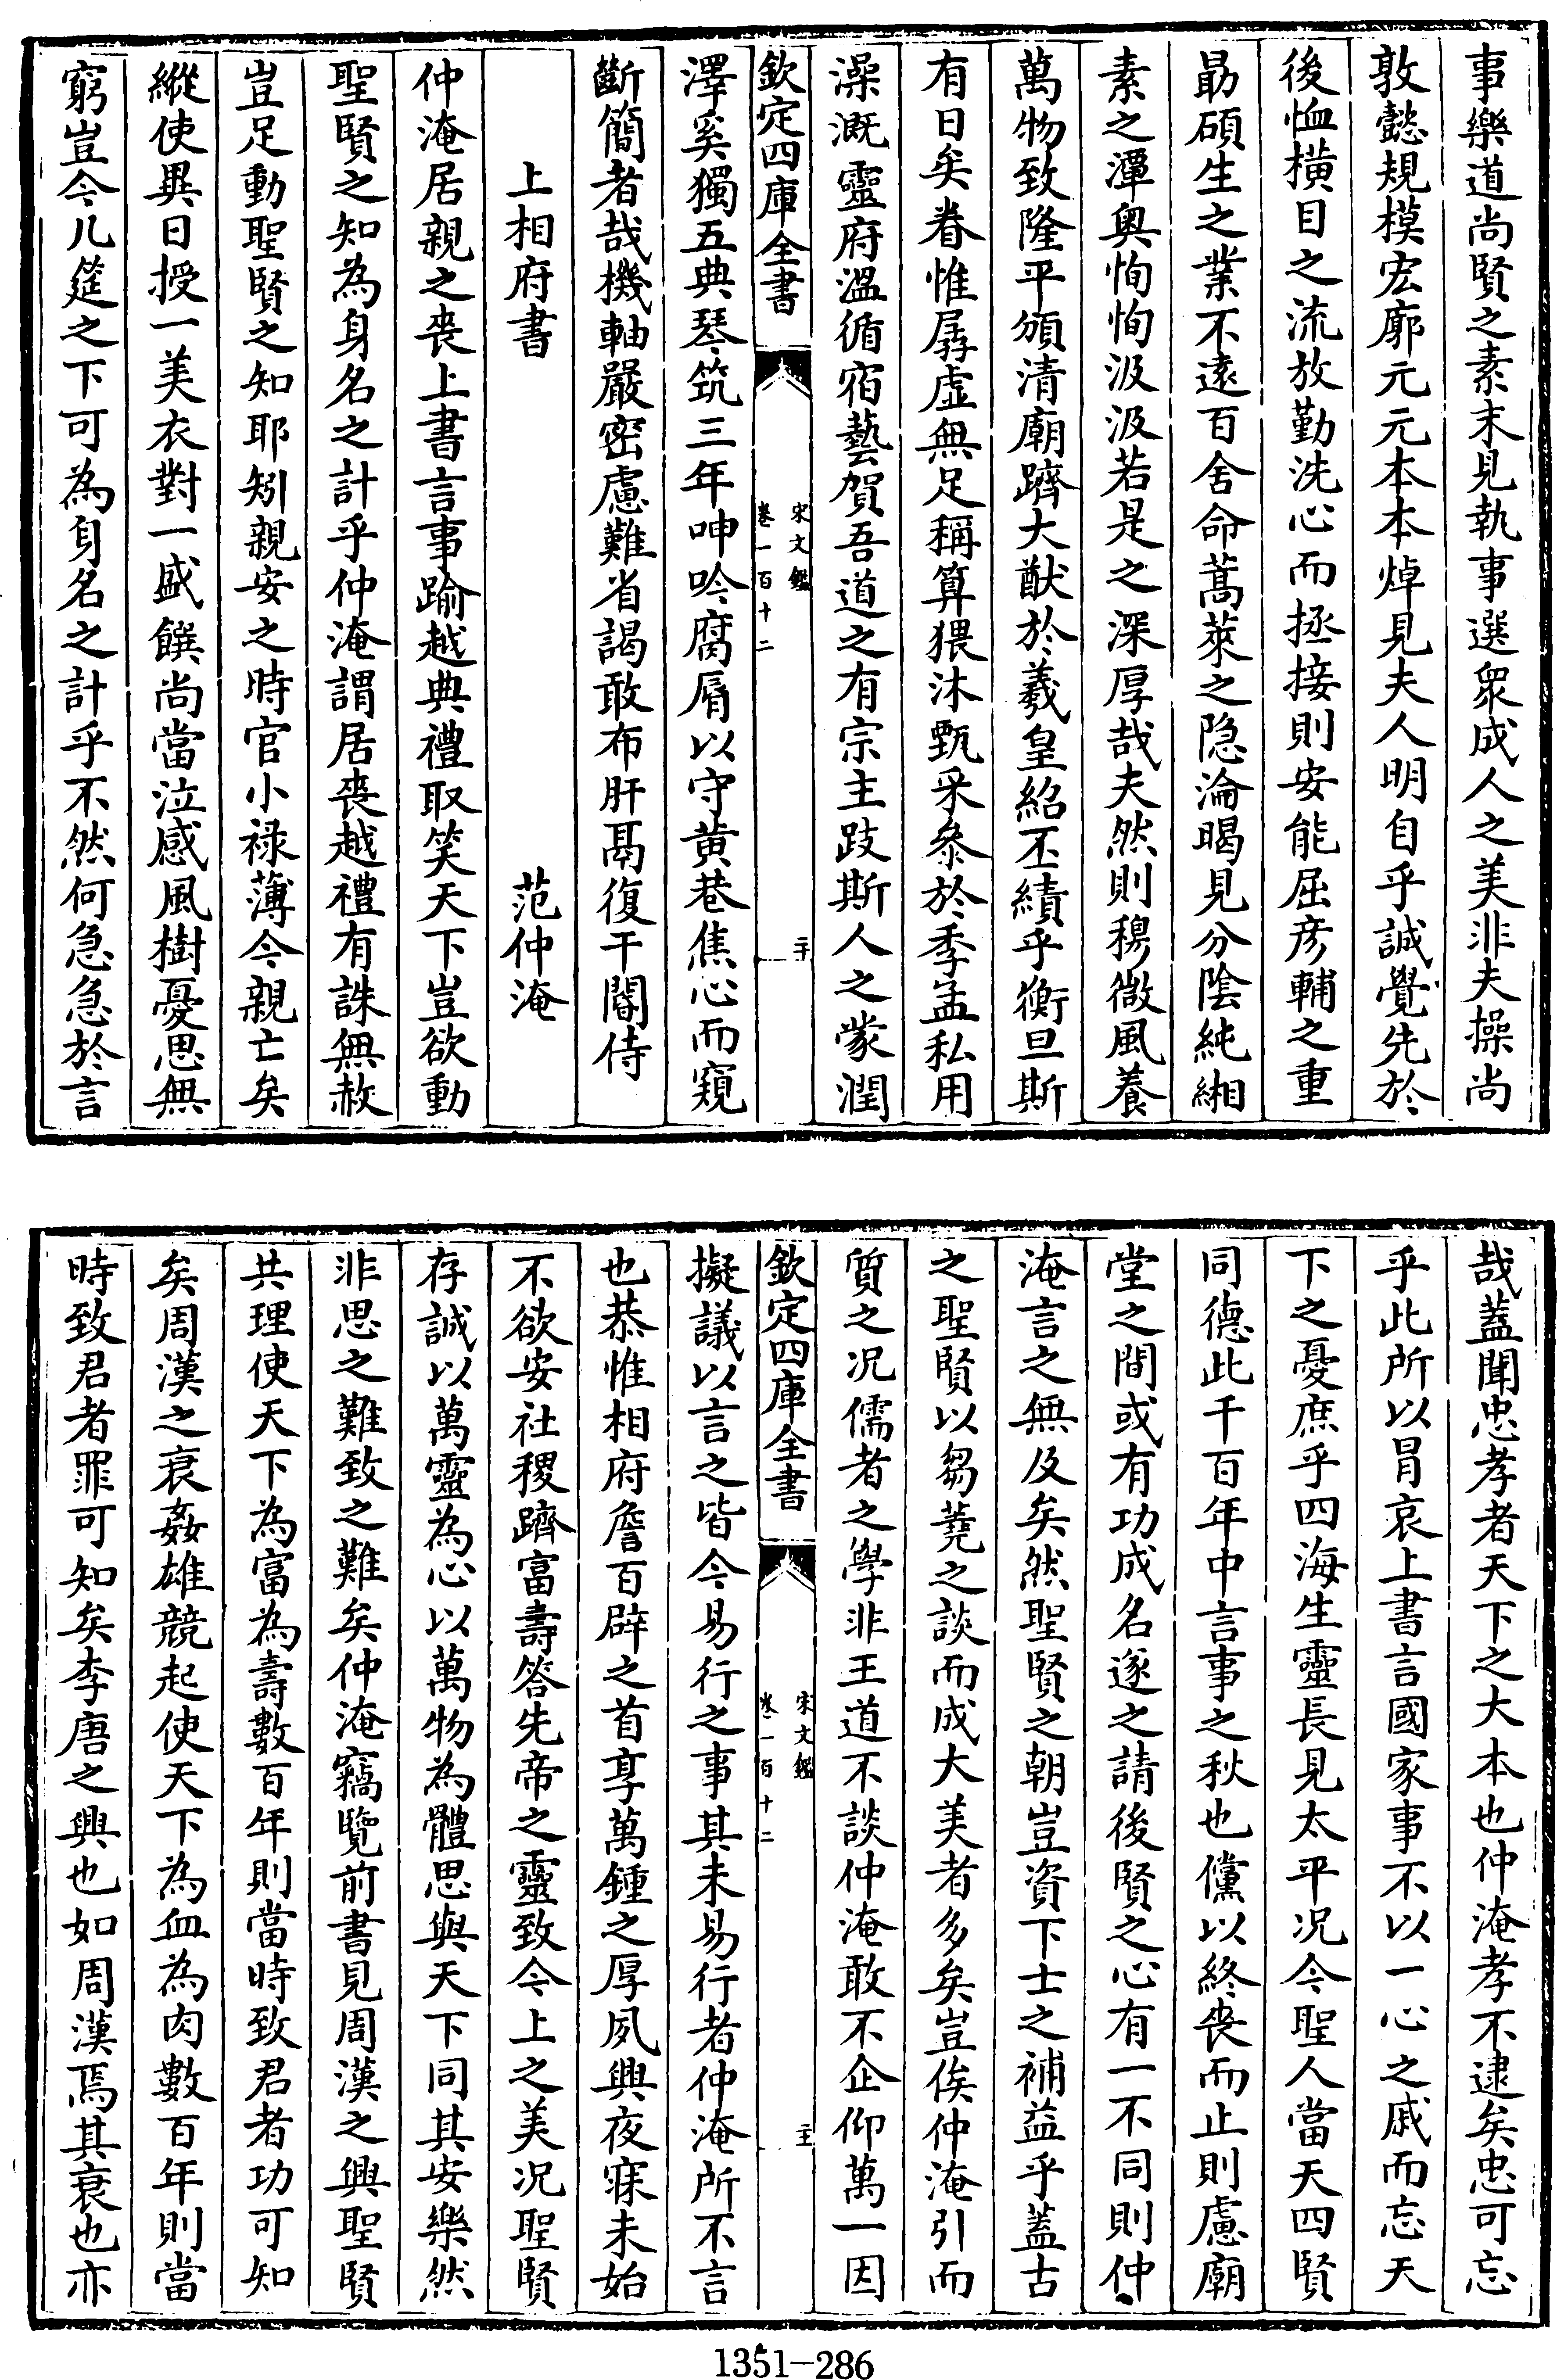 事樂道尚賢之素末見執事選衆成人之美非夫操尚
敦懿規模宏廓元元本本焯見夫人明自乎誠覺先於
後恤橫目之流放勤洗心而拯接則安能屈彦輔之重
勗碩生之業不遠百舍命蒿萊之隐淪暍見分陰純緗
素之潭奥恂恂汲汲若是之深厚哉夫然則穆微風養
萬物致隆平頒清廟躋大猷於羲皇紹丕績乎衡旦斯
有日矣眷惟孱虚無足稱算猥沐甄采叅於季孟私用
澡溉靈府溫循宿藝賀吾道之有宗主跂斯人之蒙潤
欽定四庫全書
宋文鑑
卷一百十二
二十
澤奚獨五典琴筑三年呻吟腐脣以守黄巷焦心而窺
斷簡者哉機軸嚴密慮難省謁敢布肝鬲復干閽侍
上相府書
范仲淹
仲淹居親之喪上書言事踰越典禮取笑天下豈欲動
聖賢之知為身名之計乎仲淹謂居喪越禮有誅無赦
豈足動聖賢之知耶矧親安之時官小禄薄今親亡矣
縱使異日授一美衣對一盛饌尚當泣感風樹憂思無
窮豈今几筵之下可為身名之計乎不然何急急於言
哉蓋聞忠孝者天下之大本也仲淹孝不逮矣忠可忘
乎此所以冒哀上書言國家事不以一心之戚而忘天
下之憂庶乎四海生靈長見太平况今聖人當天四賢
同德此千百年中言事之秋也儻以終喪而止則慮廟
堂之間或有功成名遂之請後賢之心有一不同則仲
淹言之無及矣然聖賢之朝豈資下士之補益乎蓋古
之聖賢以芻蕘之談而成大美者多矣豈俟仲淹引而
質之况儒者之學非王道不談仲淹敢不企仰萬一因
欽定四庫全書
宋文鑑
卷一百十二
主
擬議以言之皆今易行之事其未易行者仲淹所不言
也恭惟相府詹百辟之首享萬鍾之厚夙興夜寐未始
不欲安社稷躋富壽答先帝之靈致今上之美况聖賢
存誠以萬靈為心以萬物為體思與天下同其安樂然
非思之難致之難矣仲淹竊覽前書見周漢之興聖賢
共理使天下為富為壽數百年則當時致君者功可知
矣周漢之衰姦雄競起使天下為血為肉數百年則當
時致君者罪可知矣李唐之興也如周漢焉其衰也亦
1351-286